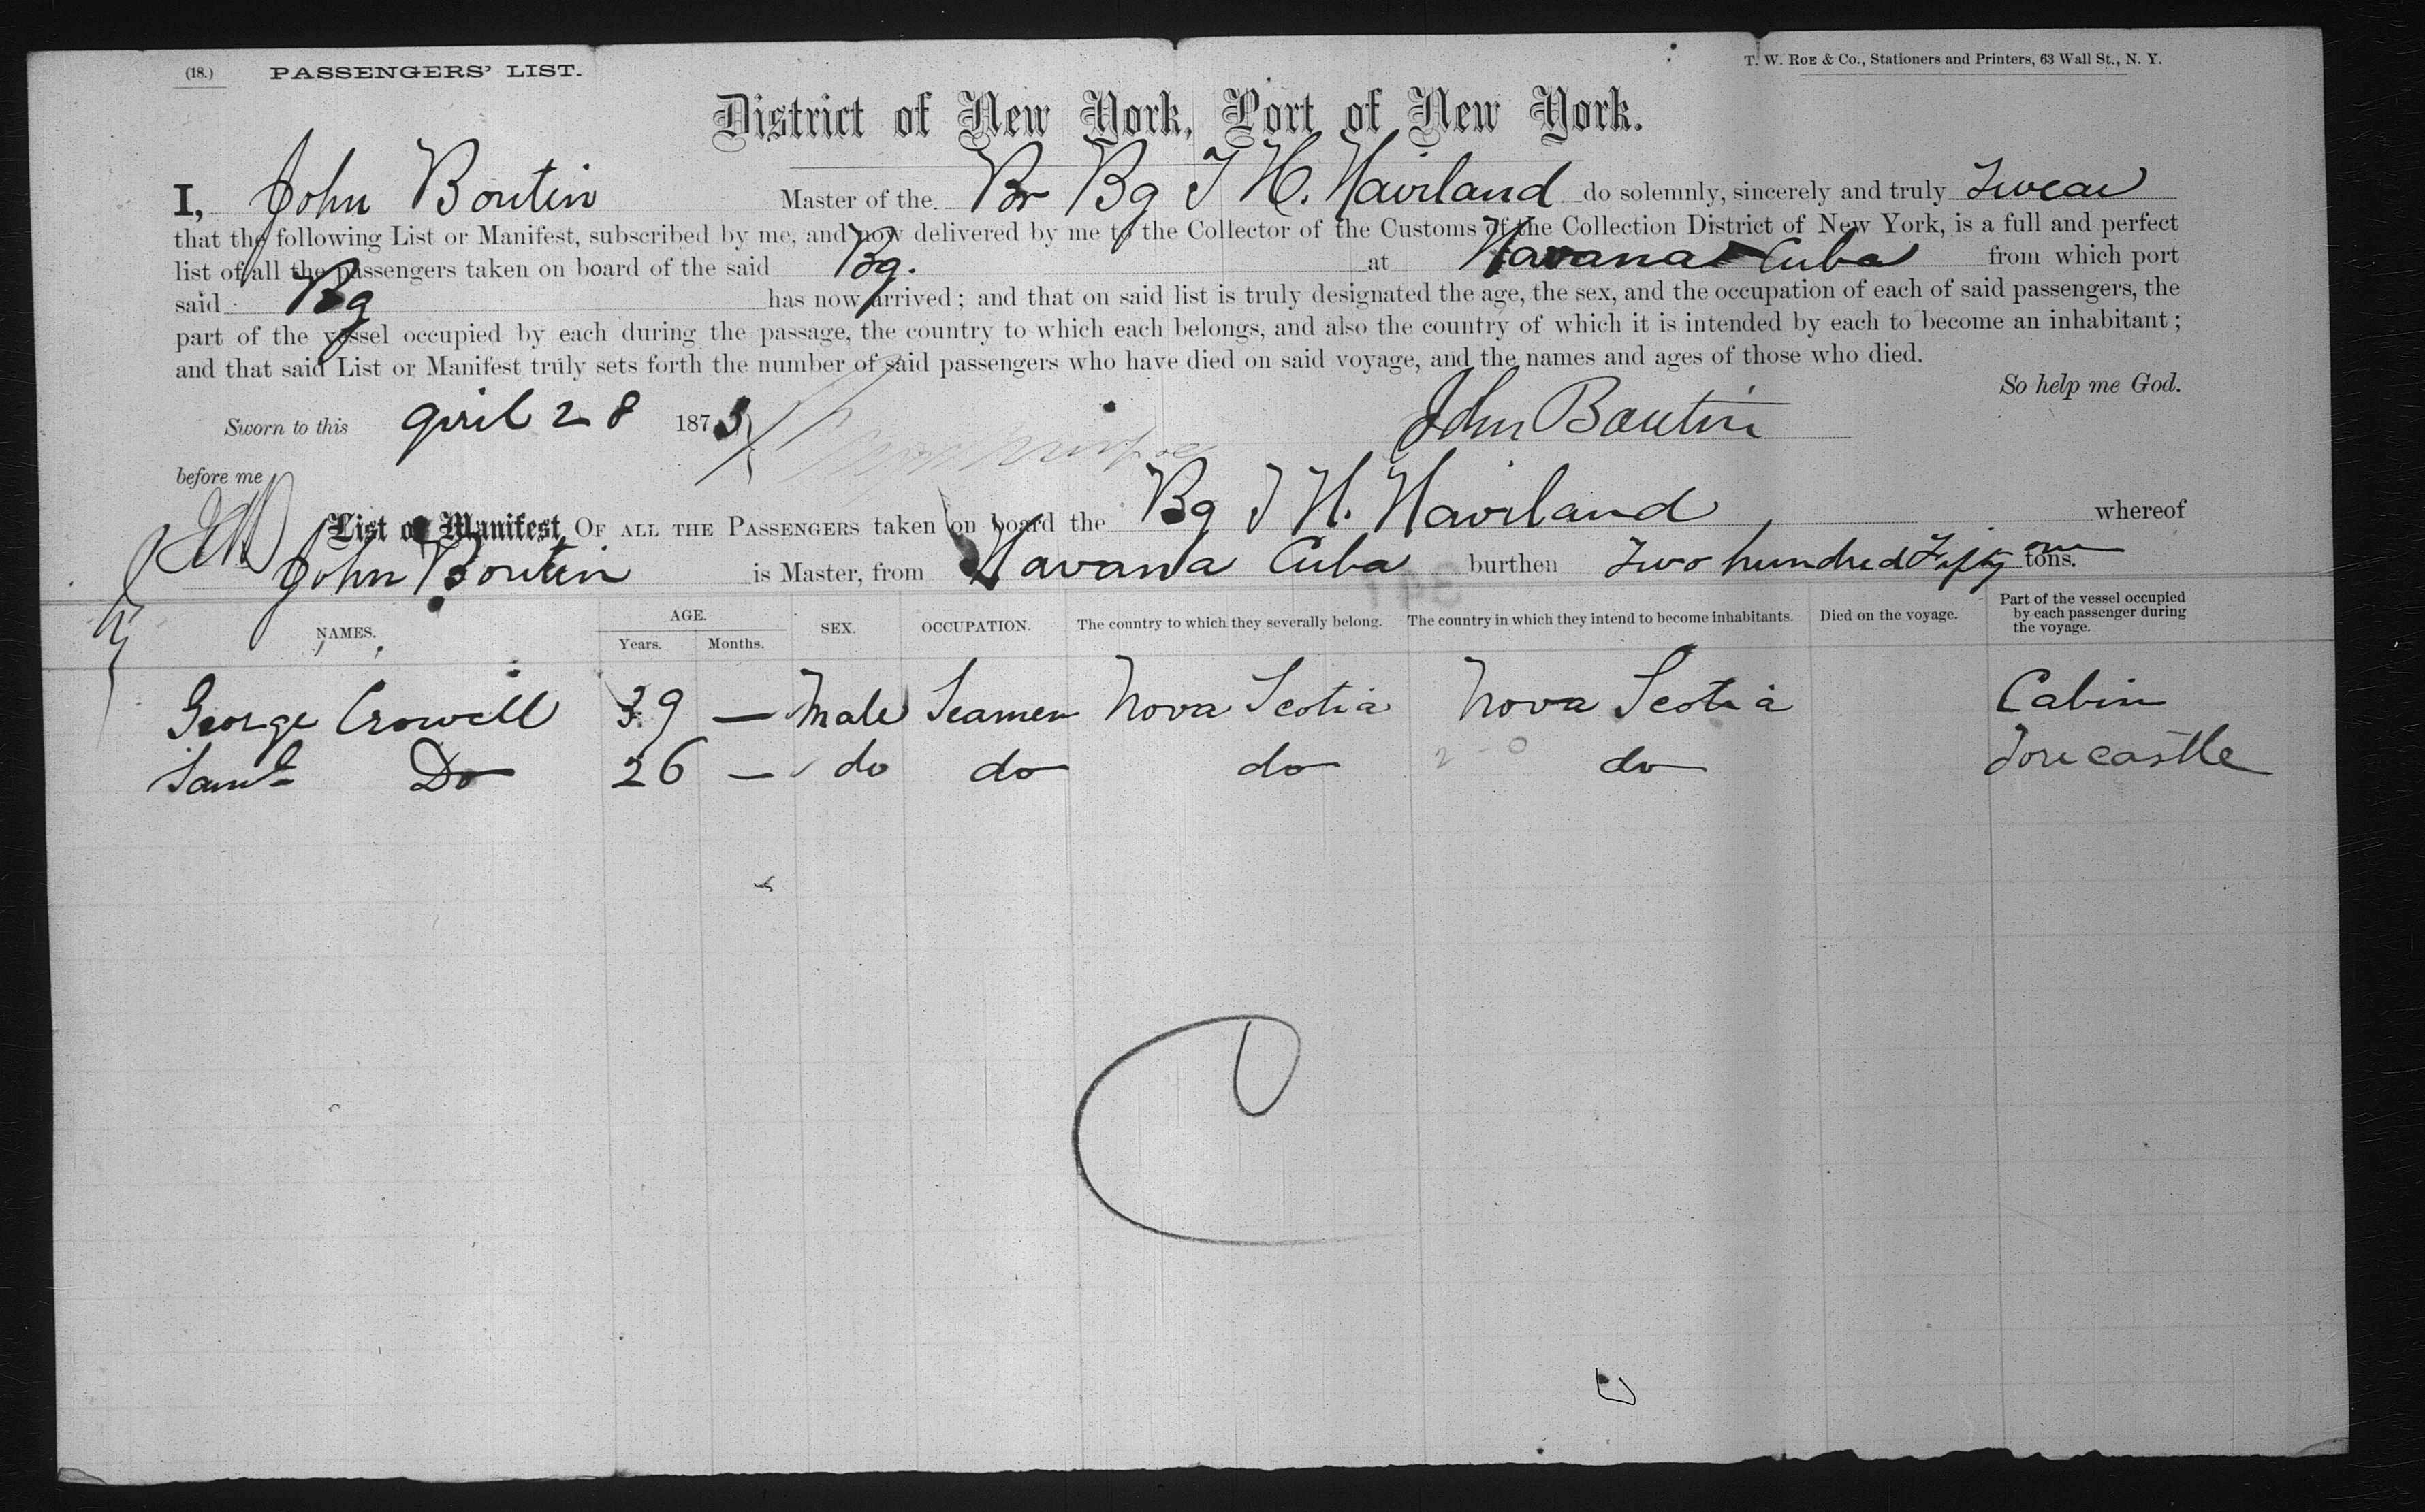 (18.) PASSENGERS' LIST. T. W. ROE & Co., Stationers and Printers, 63 Wall St., N. Y.
District of New York, Port of New York.
I, John Boutin Master of the Br Bg T H. Haviland do solemnly, sincerely and truly swear
that the following List or Manifest, subscribed by me, and now delivered by me to the Collector of the Customs of the Collection District of New York, is a full and perfect
list of all the passengers taken on board of the said Bg. at Havana Cuba from which port
said Bg has now arrived; and that on said list is truly designated the age, the sex, and the occupation of each of said passengers, the
part of the vessel occupied by each during the passage, the country to which each belongs, and also the country of which it is intended by each to become an inhabitant;
and that said List or Manifest truly sets forth the number of said passengers who have died on said voyage, and the names and ages of those who died.
So help me God.
Sworn to this April 28 1873 John Boutin
before me
List or Manifest OF ALL THE PASSENGERS taken on board the Bg T H. Haviland whereof
John Boutin is Master, from Havana Cuba burthen Two hundred Fifty one tons.
NAMES. AGE. Years. Months. SEX. OCCUPATION. The country to which they severally belong. The country in which they intend to become inhabitants. Died on the voyage. Part of the vessel occupied by each passenger during the voyage.
George Crowell 39 — Male Seamen Nova Scotia Nova Scotia Cabin
Saml Do 26 — do do do do Forecastle